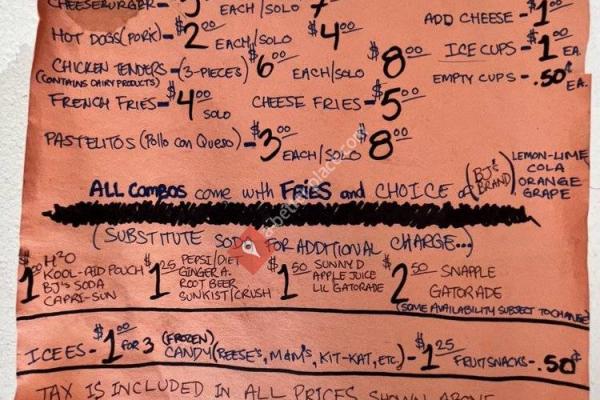 CHEESEBURGER- EACH/SOLO
ADD CHEESE - $1.00
HOT DOGS (PORK) - $2.00 EACH/SOLO $4.00
ICE CUPS - $1.00 EA.
CHICKEN TENDERS - (3-PIECES) $6.00 EACH/SOLO $8.00
(CONTAINS DAIRY PRODUCTS)
EMPTY CUPS - .50¢ EA.
FRENCH FRIES - $4.00 SOLO CHEESE FRIES - $5.00
PASTELITOS (Pollo con Queso) - $3.00 EACH/SOLO $8.00
ALL COMBOS come with FRIES and CHOICE of (BJ's BRAND) LEMON-LIME
COLA
ORANGE
GRAPE
(SUBSTITUTE SODA FOR ADDITIONAL CHARGE...)
$1.00 H2O
KOOL-AID POUCH
BJ'S SODA
CAPRI-SUN
$1.25 PEPSI/DIET
GINGER A.
ROOT BEER
SUNKIST/CRUSH
$1.50 SUNNY D
APPLE JUICE
LIL GATORADE
$2.50 SNAPPLE
GATORADE
(SOME AVAILABILITY SUBJECT TO CHANGE)
ICEES - $1.00 FOR 3 (FROZEN) CANDY (REESE'S, M&M'S, KIT-KAT, ETC) - $1.25 FRUIT SNACKS - .50¢
TAX IS INCLUDED IN ALL PRICES SHOWN ABOVE